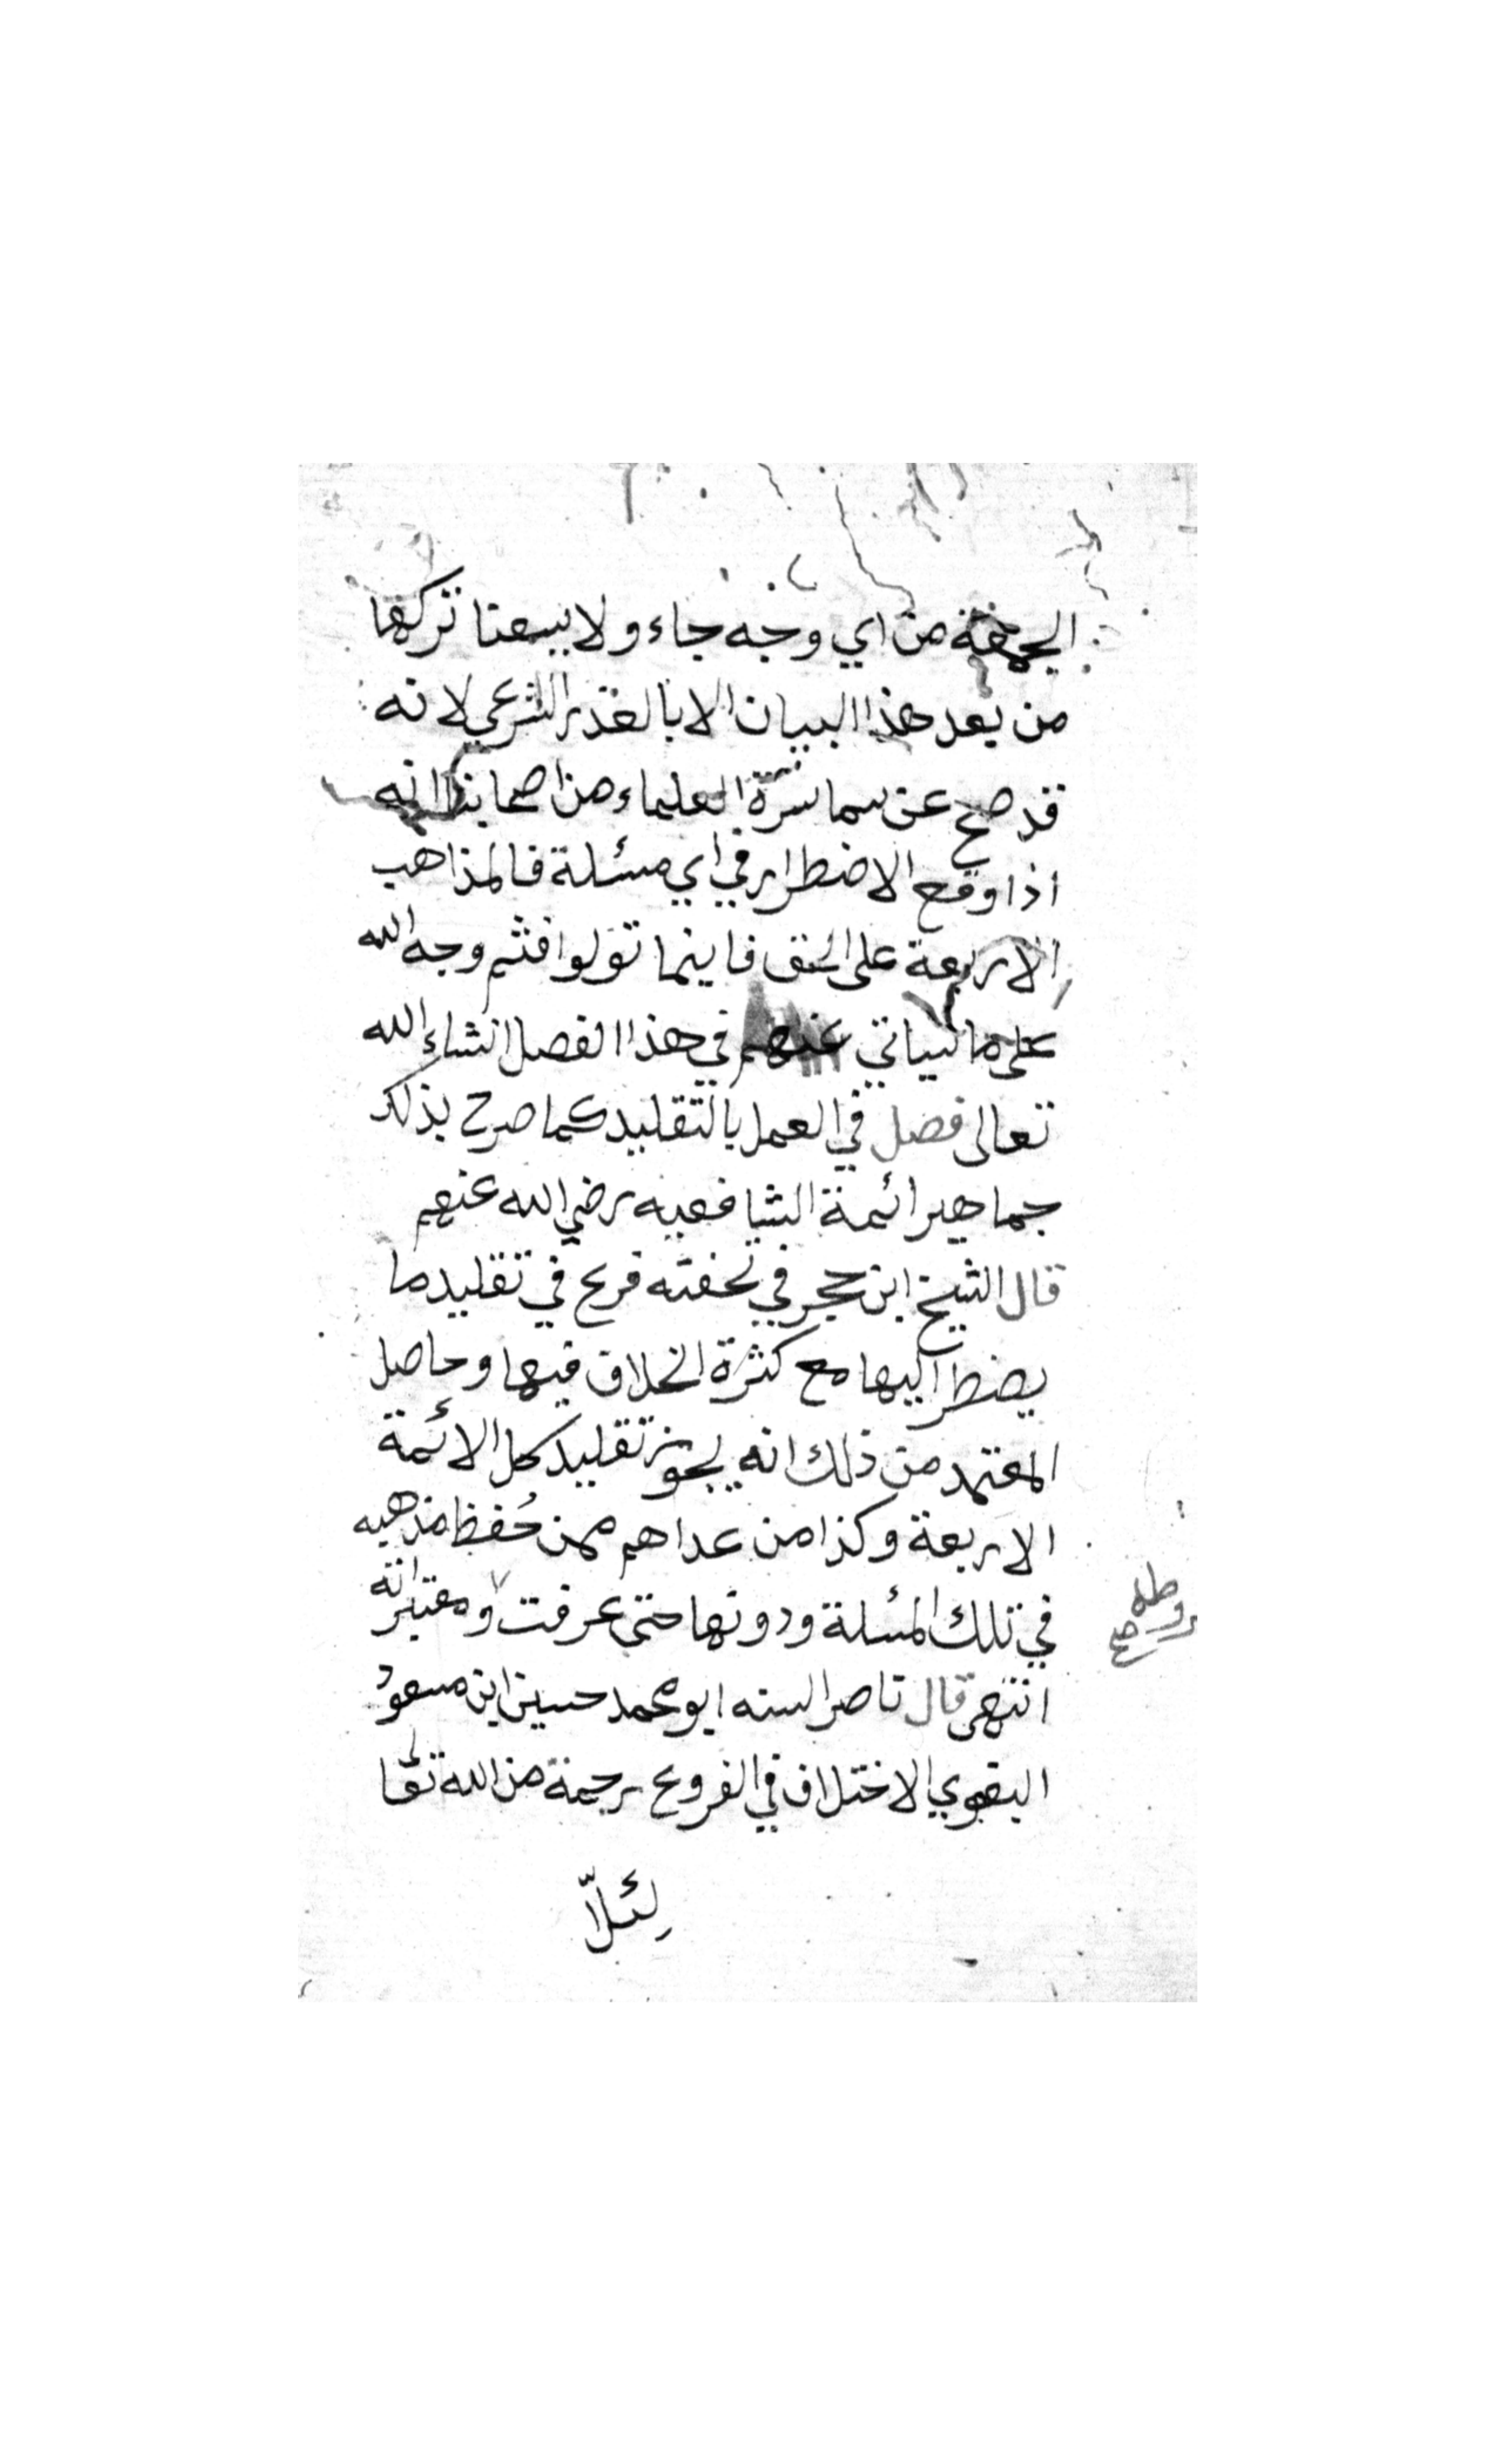 الجمعة من اي وجه جاء ولا يسعنا تركها
من بعد هذا البيان الا بالعذر الشرعي لانه
قد صح عن سماسرة العلماء من اصحابنا انه
اذا وقع الاضطرار في اي مسئلة فالمذاهب
الاربعة على الحق فاينما تولوا فثم وجه الله
على ما سياتي عنهم في هذا الفصل انشاء الله
تعالى فصل في العمل بالتقليد كما صرح بذلك
جماهير ائمة الشافعيه رضي الله عنهم
قال الشيخ ابن حجر في تحفته فرع في تقليد ما
يضطر اليها مع كثرة الخلاف فيها وحاصل
المعتمد من ذلك انه يجوز تقليد كل الائمة
الاربعة وكذا من عداهم ممن حُفظ مذهبه
في تلك المسئلة ودونها حتى عرفت ومعتبراته
شروطه صح
انتهى قال ناصر السنه ابو محمد حسين ابن مسعود
البغوي الاختلاف في الفروع رحمة من الله تعا
لئلّا